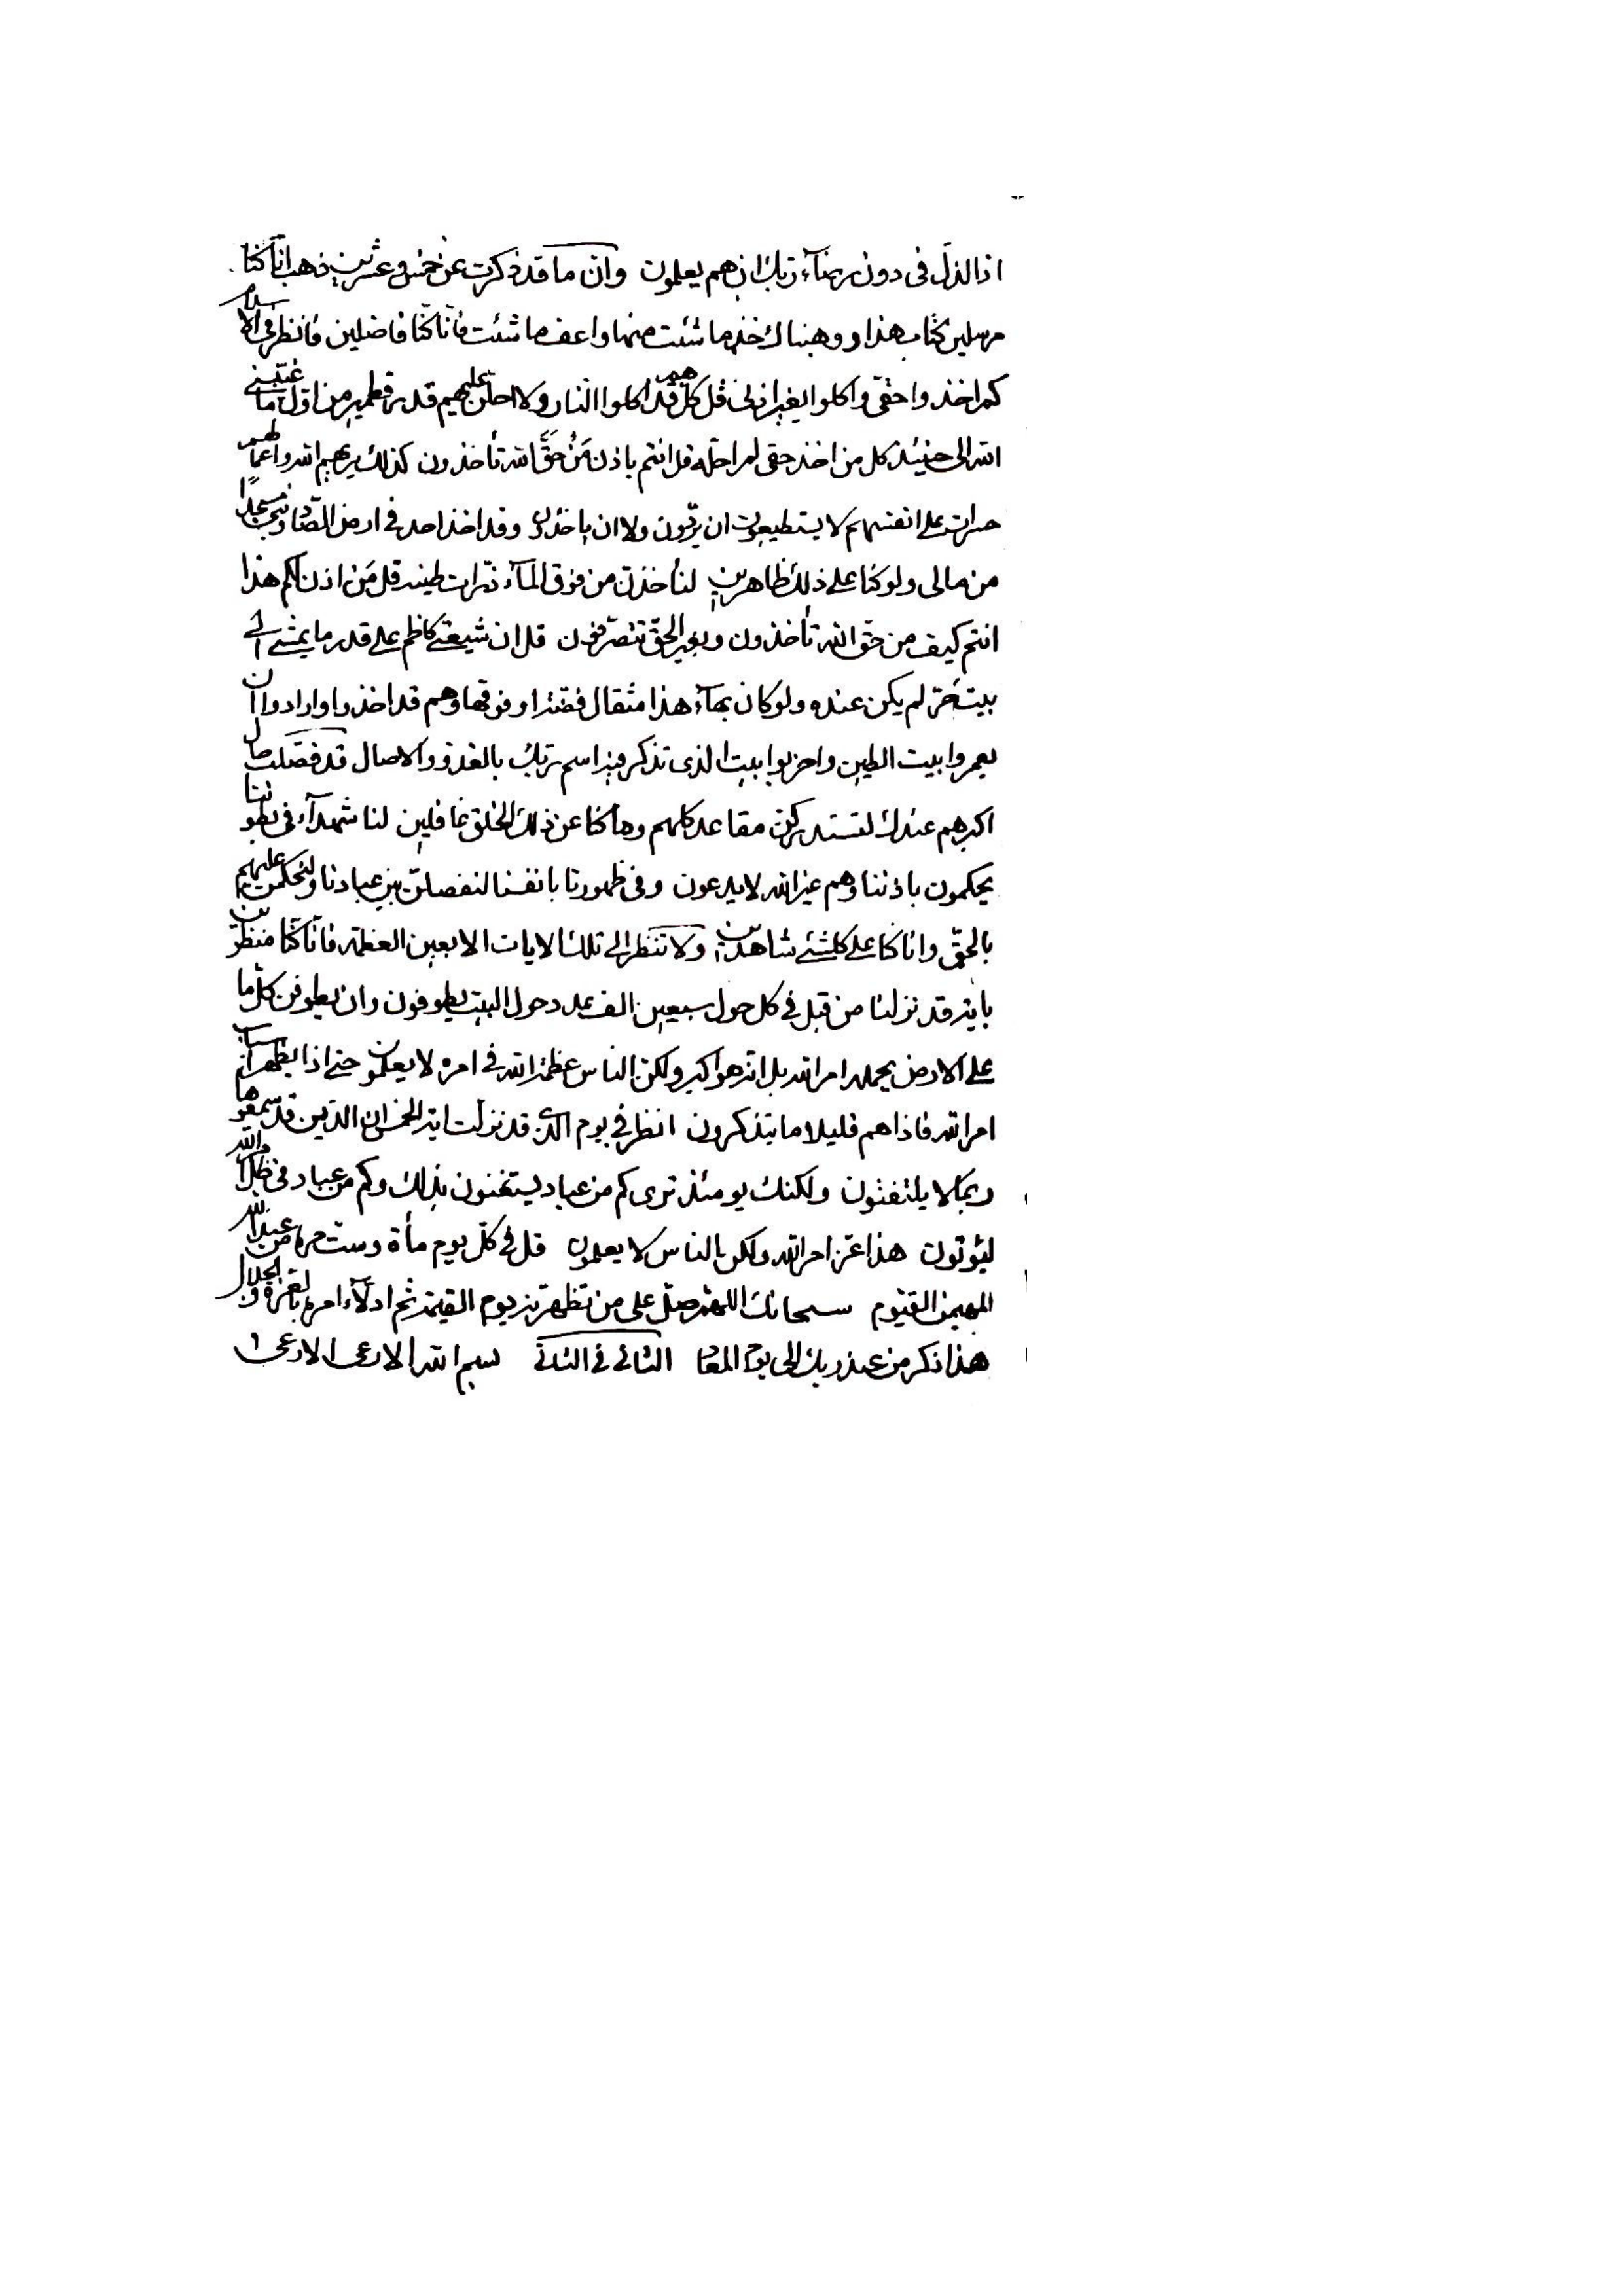 اذا الذل فى دون رضآء ربك ان هم يعلمون وان ما قد ذكرت عن خمس وعشرين ذهب انا كنا
مرسلين كتاب هذا ووهبناك خذ ما شئت منها واعف ما شئت فانا كنا فاضلين فانظر فى الاسلام
كم اخذوا حقى واكلوا بغير اذنى قل كلهم قد اكلوا النار ولا احلن عليهم قدر قطمير من اول ما غيبنى
الله الى حينئذ كل من اخذ حقى لم احله قل انتم باذن من حق الله تأخذون كذلك يريهم الله اعمالهم
حسرات على انفسهم لا يستطيعون ان يردون ولا ان ياخذون وقد اخذ احد فى ارض الصاد
من مالى ولو كنا على ذلك ظاهرين لنأخذن من فوق المآء ذرات طينه قل من اذن لكم هذا
انتم كيف من حق الله تأخذون وبغير الحق تتصرفون قل ان شيعتى كاظم على قدر ما يمشى الى
بيت حر لم يكن عنده ولو كان بهآء هذا مثقال فضة او فوقها وهم قد اخذوا وارادوا ان
يعمروا بيت الطين واخربوا بيت الذى تذكر فيه اسم ربك بالغدو والاصال قد فصلت مال
اكبرهم عندك لتستدركن مقاعد كلهم وما كنا عن ذلك الخلق غافلين لنا شهدآء فى بطوننا
يحكمون باذننا وهم غير الله لا يدعون وفى ظهورنا بانفسنا لنفصلن بين عبادنا ولنحكمن عليهم
بالحق وانا كنا على كلشئ شاهدين ولا تنظر الى تلك الايات الا بعين العظمة فانا كنا منظرين
باية قد نزلنا من قبل فى كل حول سبعين الف عدد حول البيت يطوفون وان يطوفن كل ما
على الارض بحملها امر الله بل انه هو اكبر ولكن الناس عظمة الله فى امره لا يعلمون حتى اذا يظهر
امر الله فاذا هم قليلا ما يتذكرون انظر فى يوم الذى قد نزلت اية الخمس ان الذين قد سمعوها
ربما لا يلتفتون ولكنك يومئذ ترى كم من عباد يستغنون بذلك وكم من عباد فى ظل
ليؤتون هذا عز امر الله ولكن الناس لا يعلمون قل فى كل يوم مأة وست مرة من عند الله
المهيمن القيوم سبحانك اللهم صل على من تظهرنه يوم القيمة ثم ادلآء امره بالعزة والجلال
هذا ذكر من عند ربك الى يوم المعاد الثانى فى الثانى بسم الله الارعى الارعى